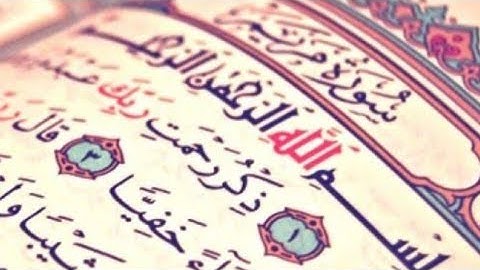 سُورَةُ مَرْيَمَ
بِسْمِ اللَّهِ الرَّحْمَٰنِ الرَّحِيمِ
١ ذِكْرُ رَحْمَتِ رَبِّكَ عَبْدَهُ
خَفِيًّا ٣ قَالَ
شَيْبًا